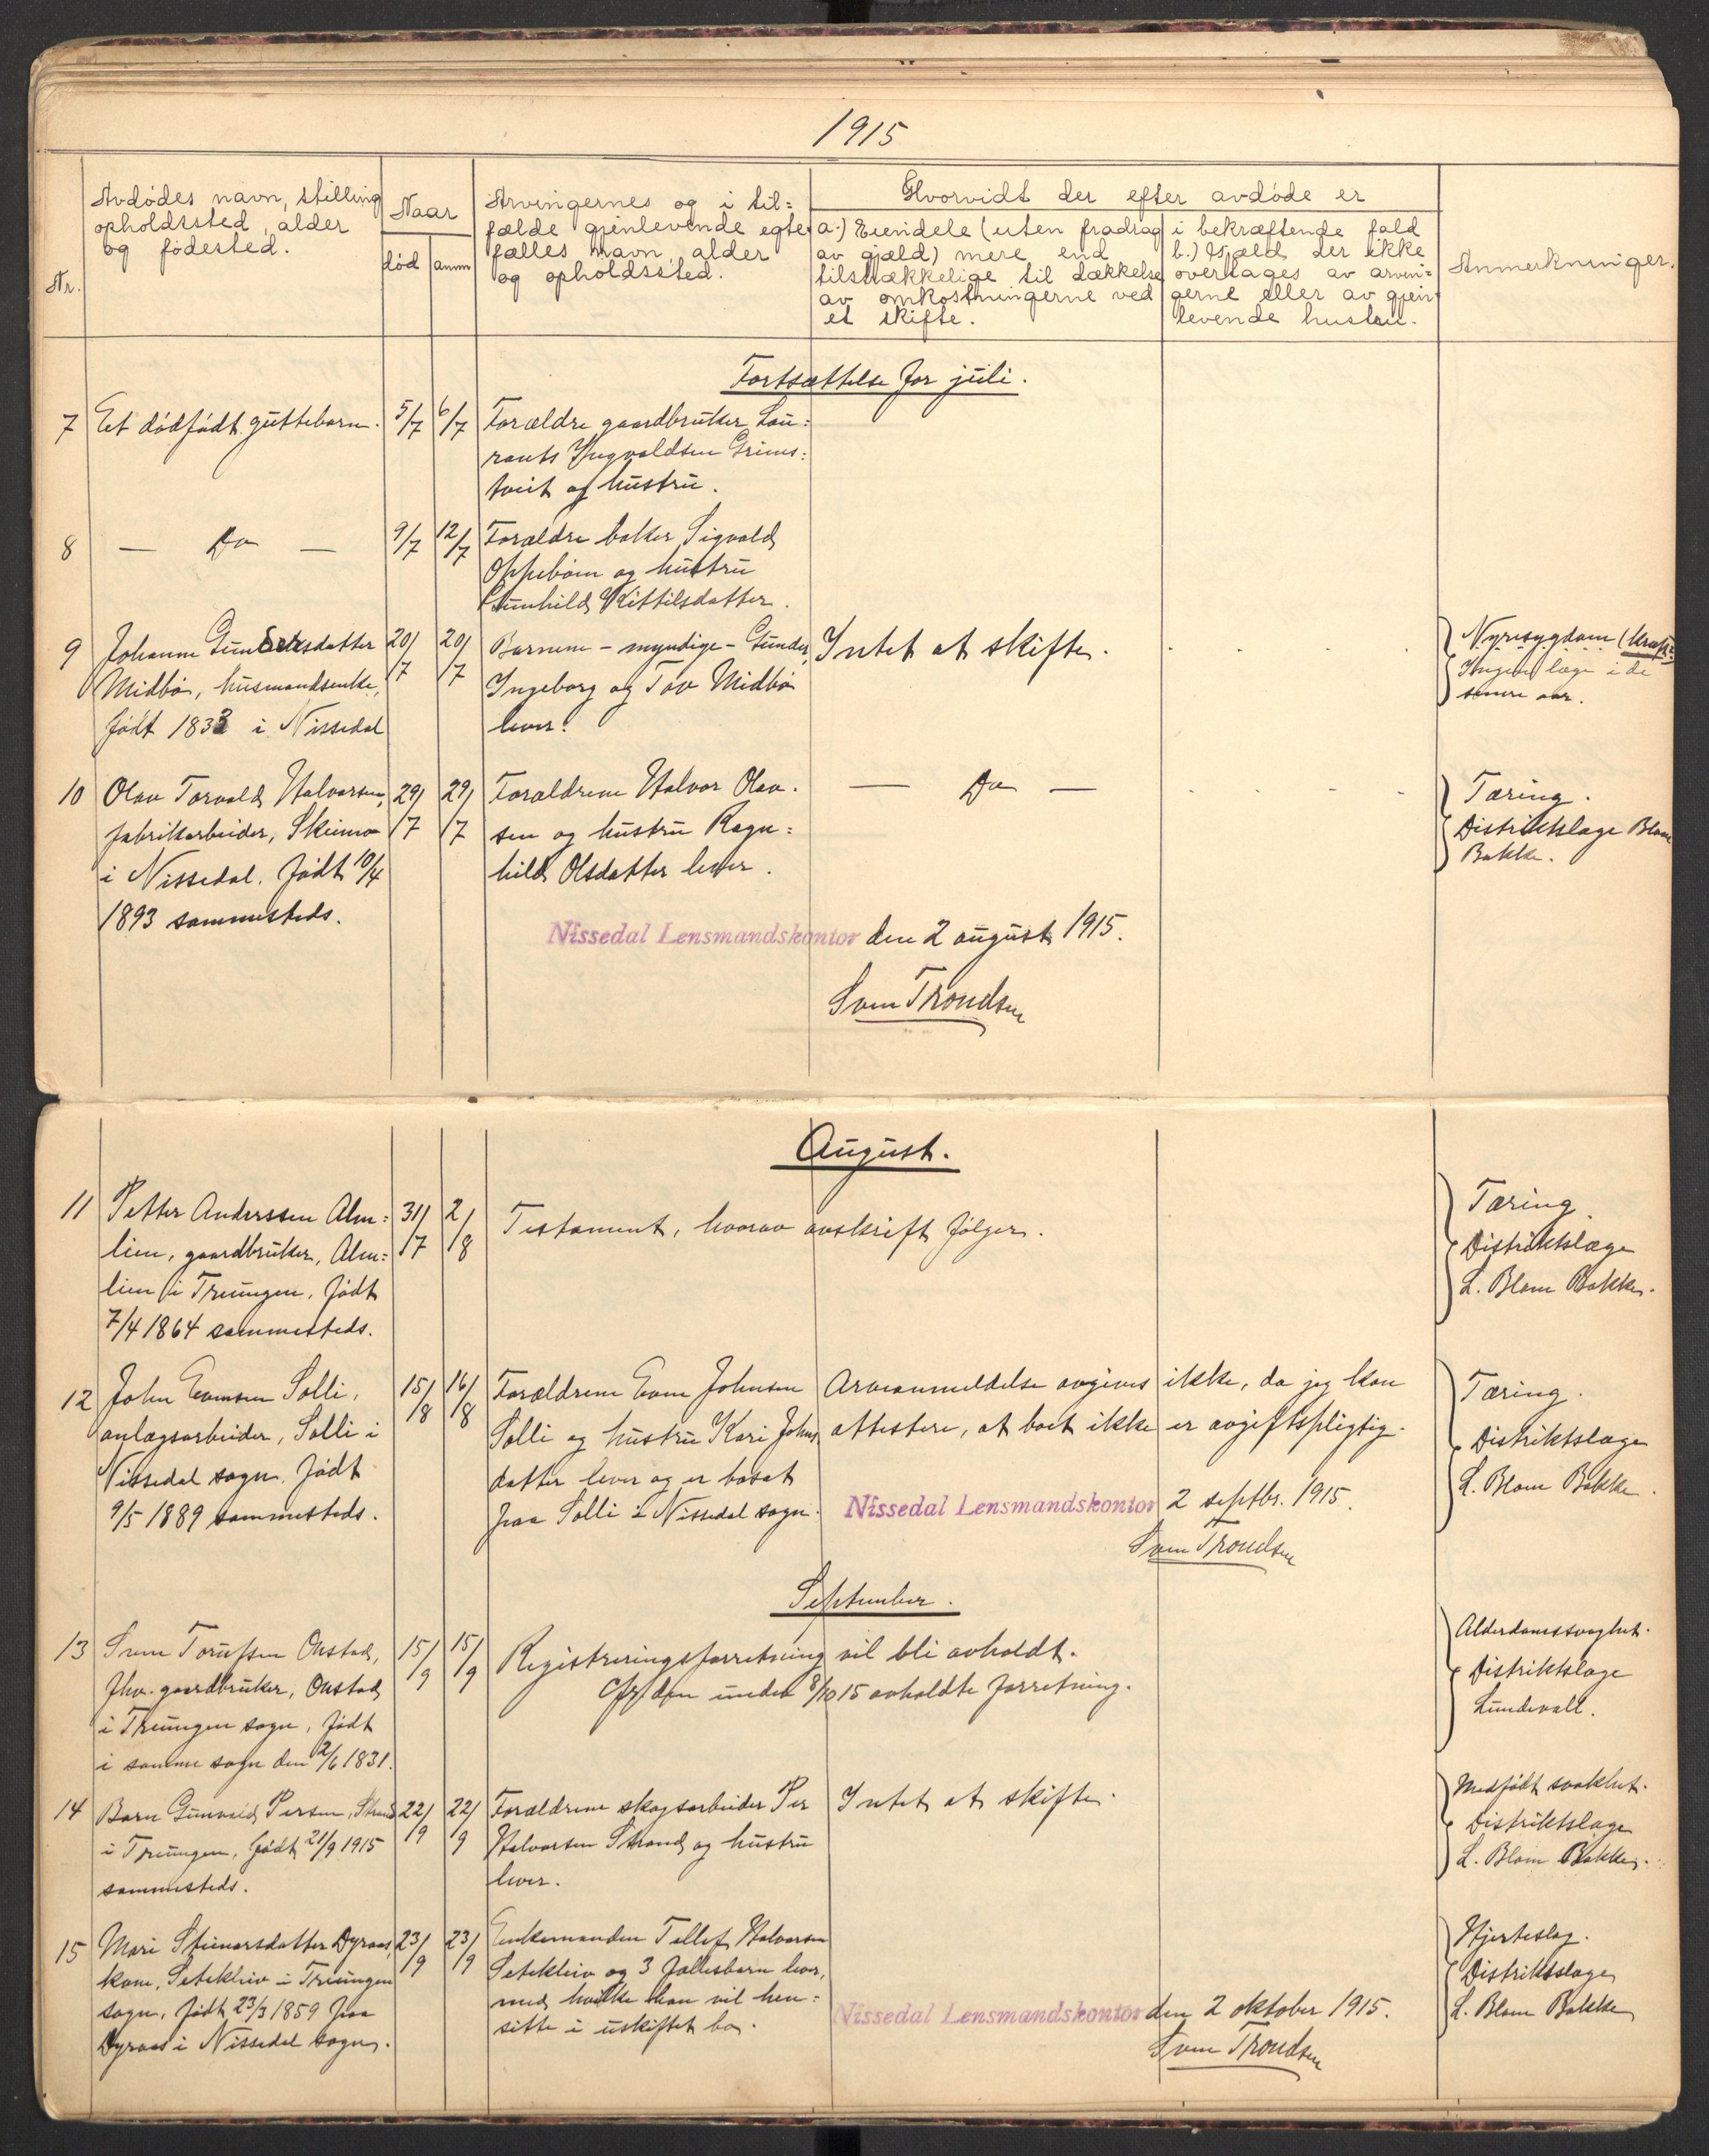 1915
Nr.
Avdødes navn, stilling
opholdssted, alder
og fødested.
Naar
død
anm
Arvingernes og i til=
fælde gjenlevende egte=
fælles navn, alder
og opholdssted.
Hvorvidt der efter avdøde er
a.) Eiendele (uten fradrag
av gjæld) mere end
tilstrækkelige til dækkelse
av omkostningerne ved
et skifte.
i bekræftende fald
b.) Gjæld der ikke
overtages av arvin=
gerne eller av gjen=
levende hustru.
Anmerkninger.
Fortsættelse for juli.
7
Et dødfødt guttebarn.
5/7
6/7
Forældre gaardbruker Lau=
rants Ingvaldsen Grims=
tveit og hustru.
8
— Do —
9/7
12/7
Forældre baker Sigvald
Oppebøen og hustru
Gunhild Kittilsdatter.
9
Johanne Gundersdatter
Midbø, husmandsenke,
født 1833 i Nissedal
20/7
20/7
Barnene - myndige - Gunder,
Ingeborg og Tov Midbø
lever.
Intet at skifte.
Nyresygdom (kræft?
Ingen læge i de
senere aar.
10
Olav Torvald Halvorsen,
fabrikarbeider, Skeimo
i Nissedal. Født 10/4
1893 sammesteds.
29/7
29/7
Forældrene Halvor Olav.
sen og hustru Ragn=
hild Olsdatter lever.
— Do —
Tæring.
Distriktslæge Blom
Bakke.
Nissedal Lensmandskontor den 2 august 1915.
Sven Trondsen
August.
11
Petter Anderssen Alm=
lien, gaardbruker, Alm=
lien i Treungen, født
7/4 1864 sammesteds.
31/7
2/8
Testament, hvorav avskrift følger.
Tæring.
Distriktslæge
L. Blom Bakke.
12
John Evensen Solli,
anlægsarbeider, Solli i
Nissedal sogn. født
9/5 1889 sammesteds.
15/8
16/8
Forældrene Even Johnsen
Solli og hustru Kari Johns
datter lever og er bosat
paa Solli i Nissedal sogn.
Arveanmeldelse avgives ikke, da jeg kan
attestere, at boet ikke er avgiftspligtig.
Tæring.
Distriktslæge
L. Blom Bakke.
Nissedal Lensmandskontor 2 septbr. 1915.
Sven Trondsen
September.
13
Sven Torufsen Onstad,
fhv. gaardbruker, Onstad
i Treungen sogn, født
i samme sogn den 2/6 1831.
15/9
15/9
Registreringsforretning vil bli avholdt.
Cfr den under 8/10 15 avholdte forretning.
Alderdomssvaghet.
Distriktslæge
Lundevall.
14
Barn Gunvald Persen, Strand
i Treungen, født 21/9 1915
sammesteds.
22/9
22/9
Forældrene skogsarbeider Per
Halvorsen Strand og hustru
lever.
Intet at skifte.
Medfødt svakhet.
Distriktslæge
L. Blom Bakke.
15
Mari Steinarsdatter Dyraas,
kone, Setekleiv i Treungen
sogn, født 23/3 1859 paa
Dyraas i Nissedal sogn.
23/9
23/9
Enkemanden Tellef Halvorsen
Setekleiv og 3 fællesbarn lever,
med hvilke han vil hen=
sitte i uskiftet bo.
Hjerteslag.
Distriktslæge
L. Blom Bakke
Nissedal Lensmandskontor den 2 oktober 1915.
Sven Trondsen